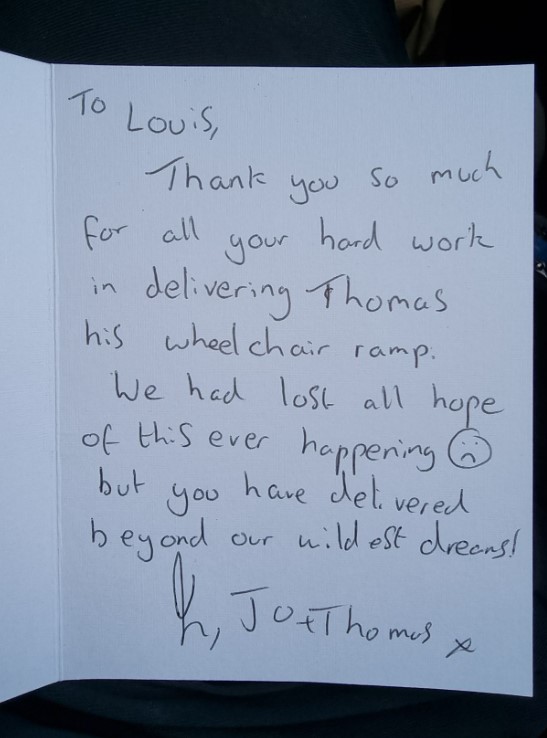 To Louis,
Thank you so much
for all your hard work
in delivering Thomas
his wheelchair ramp.
We had lost all hope
of this ever happening ☹
but you have delivered
beyond our wildest dreams!
Jo + Thomas x